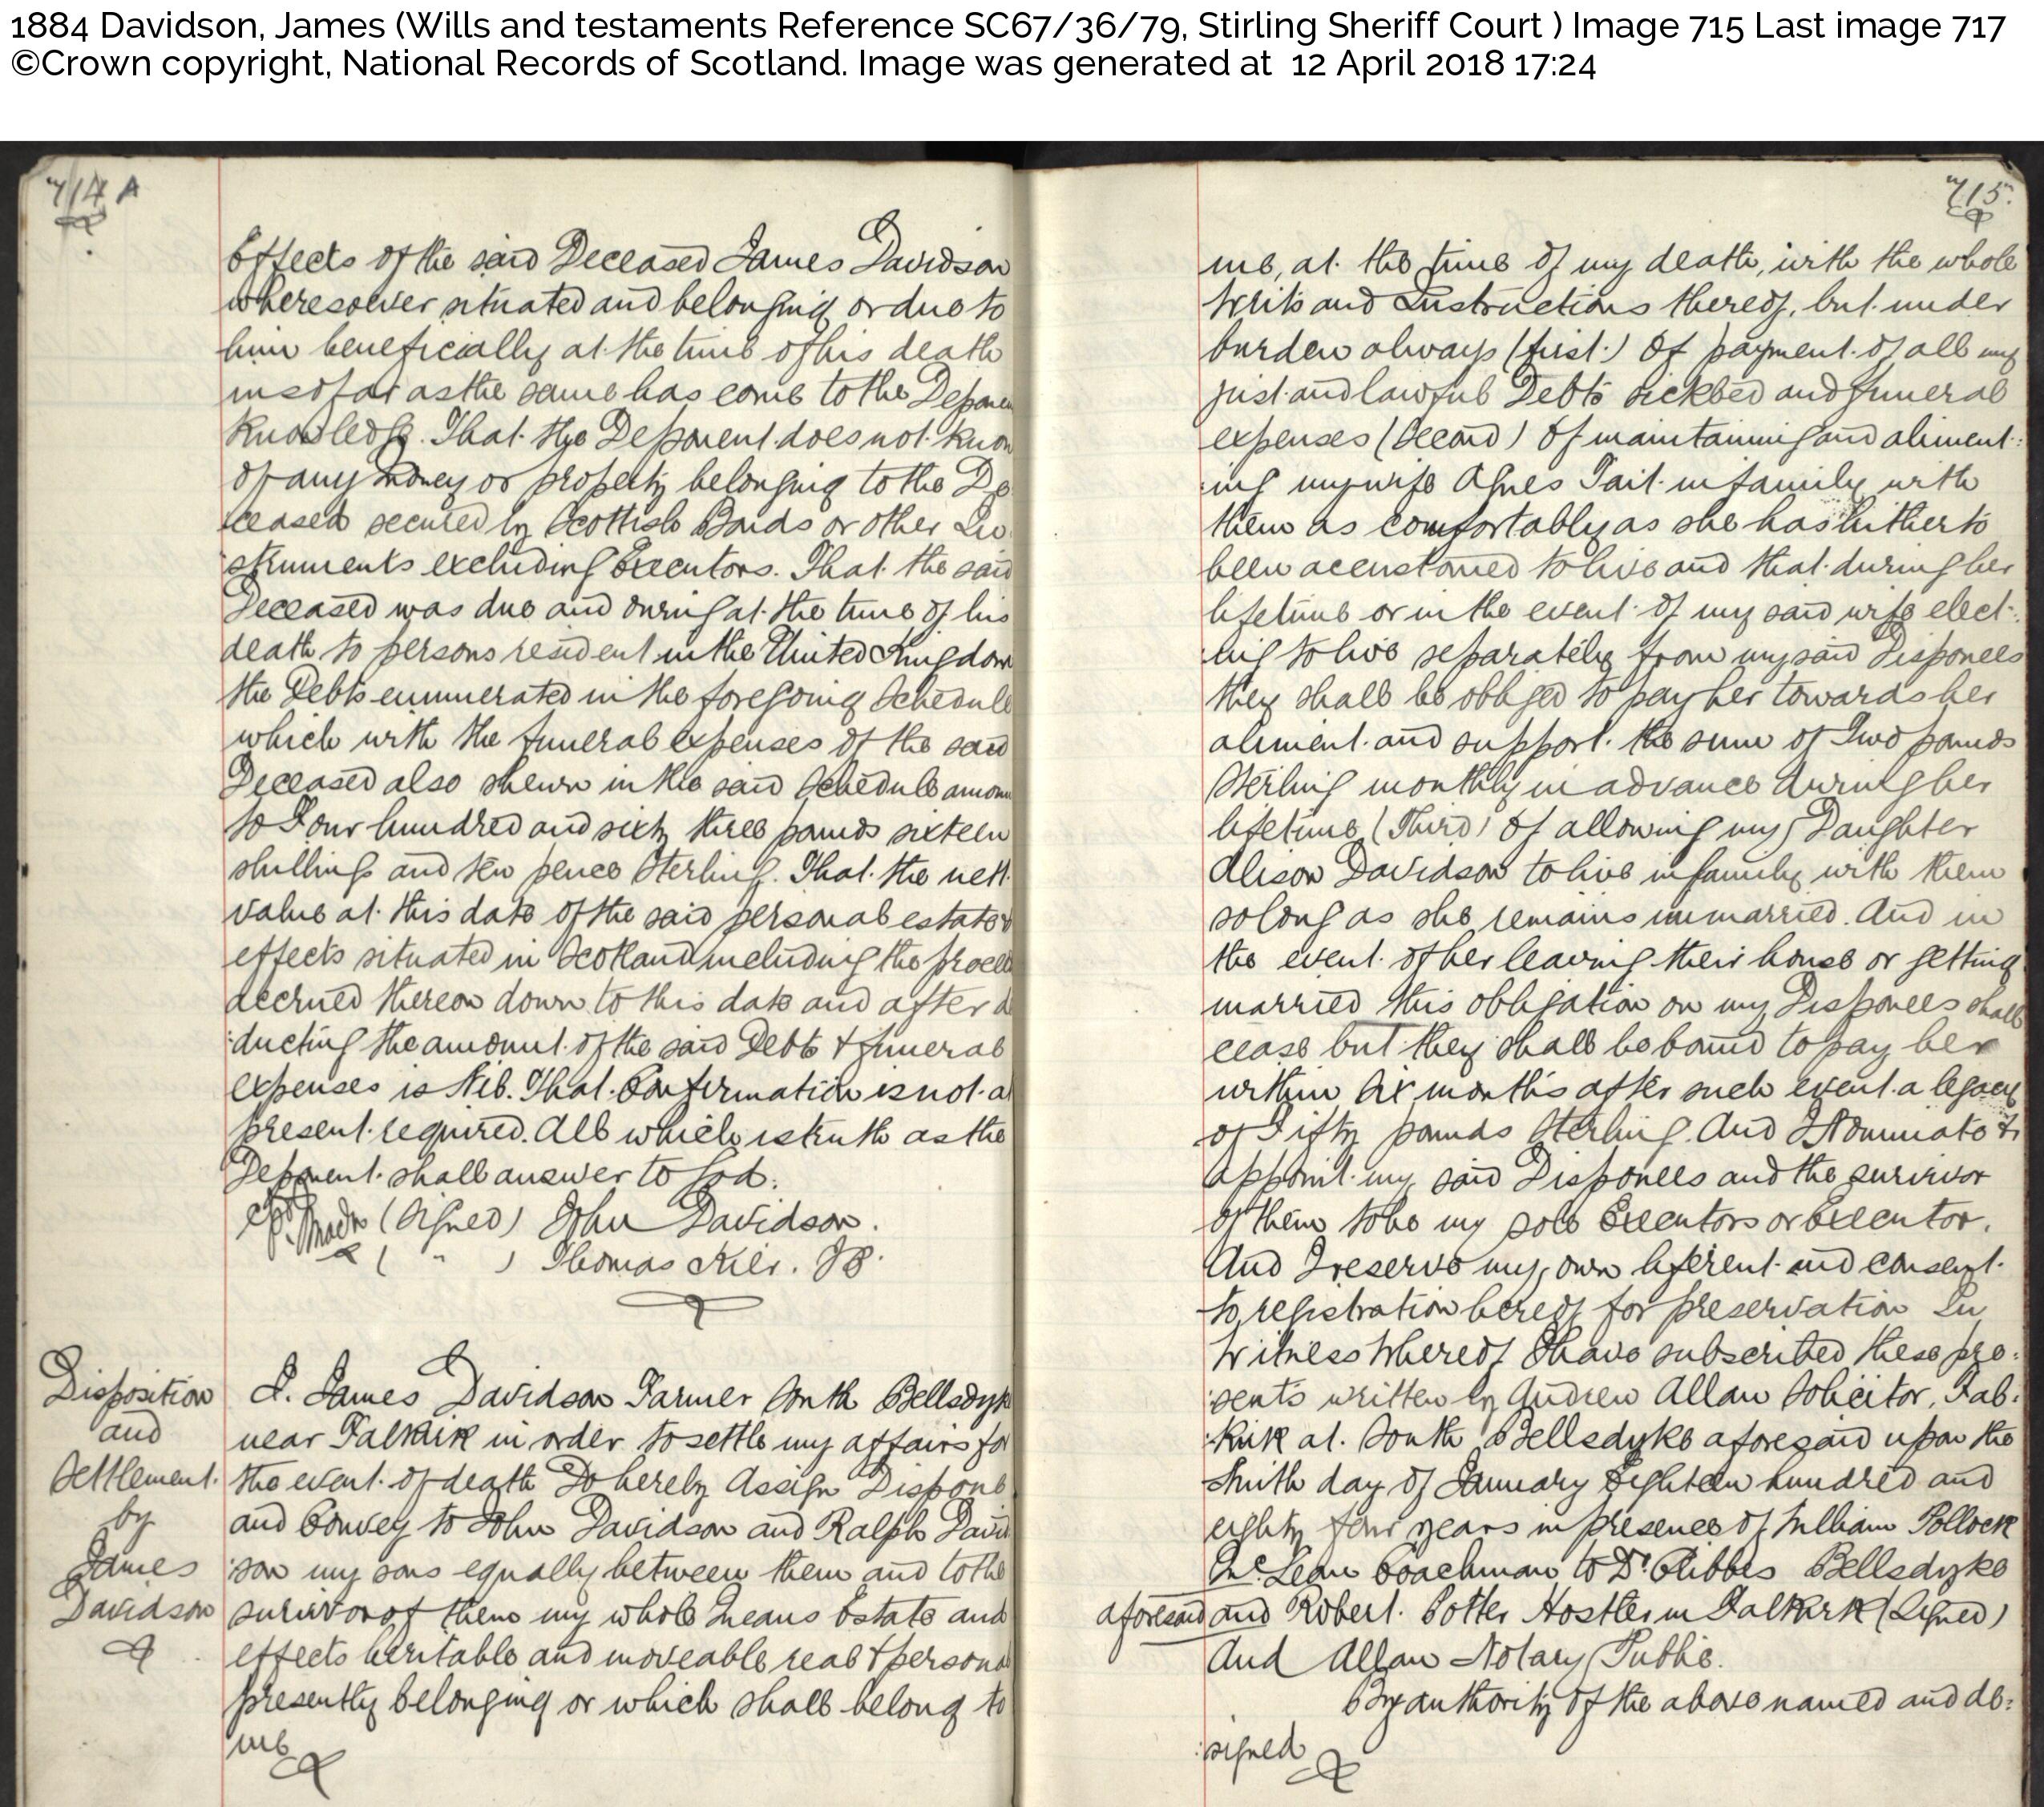 1884 Davidson, James (Wills and testaments Reference SC67/36/79, Stirling Sheriff Court ) Image 715 Last image 717
©Crown copyright, National Records of Scotland. Image was generated at 12 April 2018 17:24
714 A
Effects of the said Deceased James Davidson
wheresoever situated and belonging or due to
him beneficially at the time of his death
in so far as the same has come to the Deponen
Knowledge. That the Deponent does not know
of any money or property belonging to the De
ceased secured by Scottish Bonds or other In
struments excluding Executors. That the said
Deceased was due and owing at the time of his
death to persons resident in the United Kingdom
the Debts enumerated in the foregoing Schedule
which with the funeral expenses of the said
Deceased also shewn in the said Schedule amoun
to Four hundred and sixty three pounds sixteen
shillings and ten pence Sterling. That the nett
value at this date of the said personal estate &
effects situated in Scotland including the procee
accrued thereon down to this date and after d
:ducting the amount of the said Debts & funeral
expenses is Nil. That Confirmation is not a
present required. All which is truth as the
Deponent shall answer to God.
(Signed) John Davidson.
( " ) Thomas Kier. JP.
Disposition
and
Settlement
by
James
Davidson
I. James Davidson Farmer South Bellsdyk
near Falkirk in order to settle my affairs fo
the event of death Do hereby Assign Dispone
and Convey to John Davidson and Ralph David
:son my sons equally between them and to the
survivor of them my whole Means Estate and
effects heritable and moveable real & persona
presently belonging or which shall belong to
me
715.
me, at the time of my death, with the whole
Writs and Instructions thereof, but under
burden always (first) Of payment of all my
just and lawful Debts sickbed and funeral
expenses (Second) Of maintaining and aliment:
:ing my wife Agnes Tait in family with
them as comfortably as she has hitherto
been accustomed to live and that during her
lifetime or in the event of my said wife elect:
:ing to live separately from my said Disponees
they shall be obliged to pay her towards her
aliment and support the sum of Two pounds
Sterling monthly in advance during her
lifetime (Third) Of allowing my Daughter
Alison Davidson to live in family with them
so long as she remains unmarried. And in
the event of her leaving their house or getting
married this obligation on my Disponees shall
cease but they shall be bound to pay her
within six months after such event a legacy
of Fifty pounds Sterling. And I Nominate &
appoint my said Disponees and the survivor
of them to be my sole Executors or Executor.
And I reserve my own liferent and consent
to registration hereof for preservation In
Witness Whereof I have subscribed these pre:
:sents written by Andrew Allan Solicitor, Fal:
:kirk at South Bellsdyke aforesaid upon the
Ninth day of January Eighteen hundred and
eighty four years in presence of William Pollock
McLean Coachman to Dr. Gibbes Bellsdyke
aforesaid and Robert Potter Hostler in Falkirk (Signed)
And Allan Notary Public.
By authority of the above named and de:
:signed